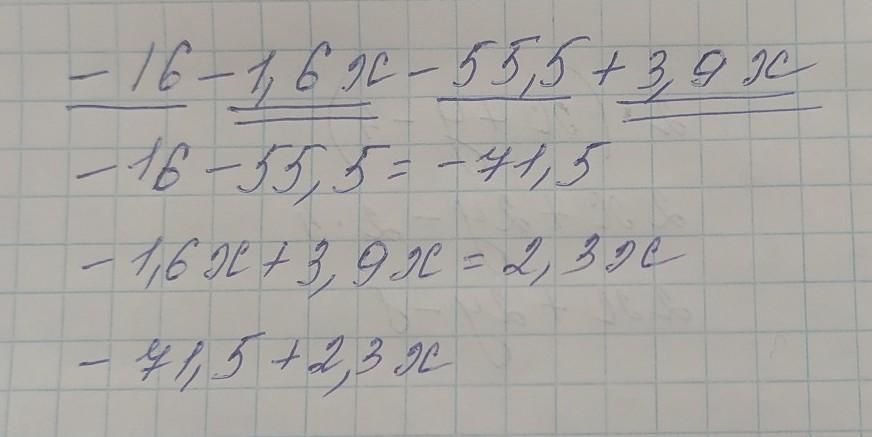 -16-1,6x-55,5+3,9x
-16-55,5=-71,5
-1,6x+3,9x=2,3x
-71,5+2,3x